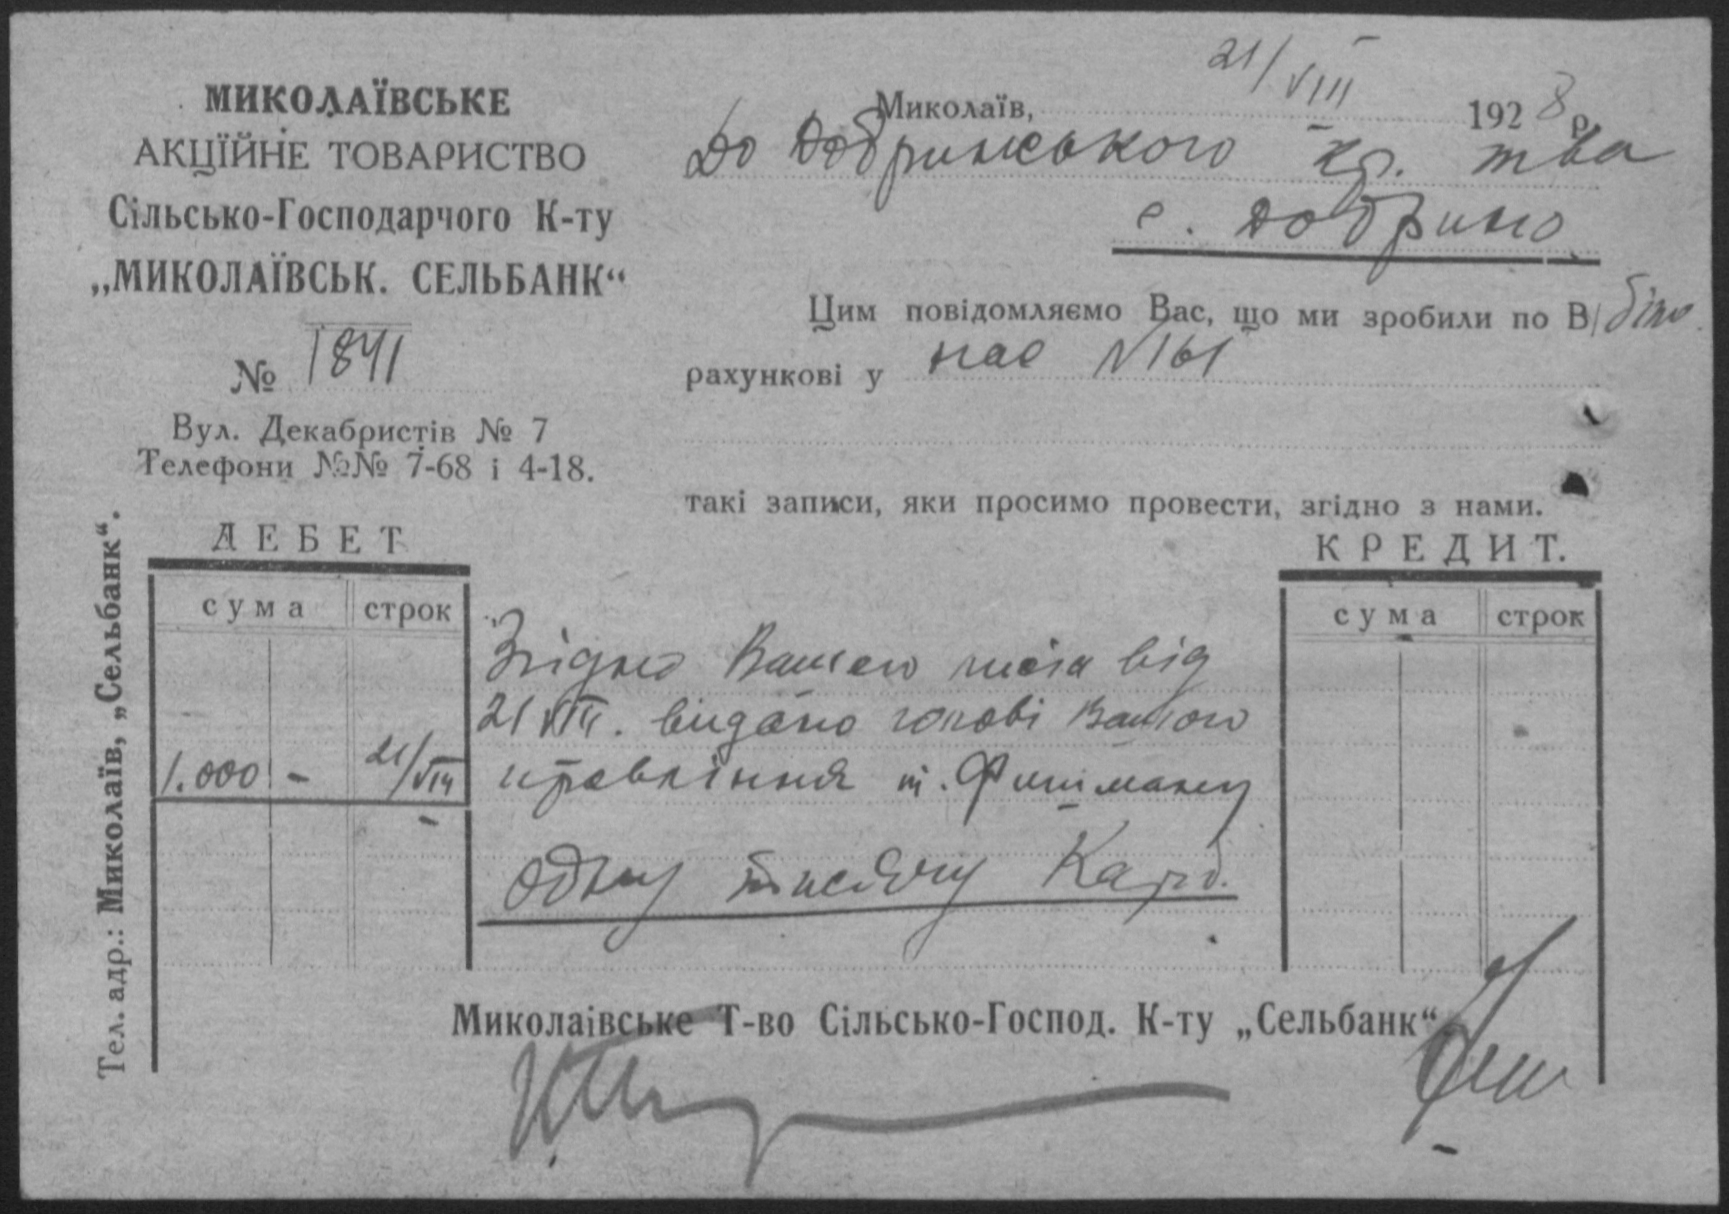 МИКОЛАЇВСЬКЕ
АКЦІЙНЕ ТОВАРИСТВО
Сільсько-Господарчого К-ту
„МИКОЛАЇВСЬК. СЕЛЬБАНК“
№ 1841
Вул. Декабристів № 7
Телефони №№ 7-68 і 4-18.
Тел. адр.: Миколаїв, „Сельбанк“.
Миколаїв, 21/VIII 1928 р.
До Добринського кр. т-ва
с. Добрино
Цим повідомляємо Вас, що ми зробили по В/
рахункові у нас №161
такі записи, яки просимо провести, згідно з нами.
ДЕБЕТ
сума строк
1.000 - 21/VIII
КРЕДИТ.
сума строк
Згідно Вашого листа від
21 VIII. видано голові Вашого
правління т. Фишману
одну тисячу Карб.
Миколаівське Т-во Сільсько-Господ. К-ту „Сельбанк“